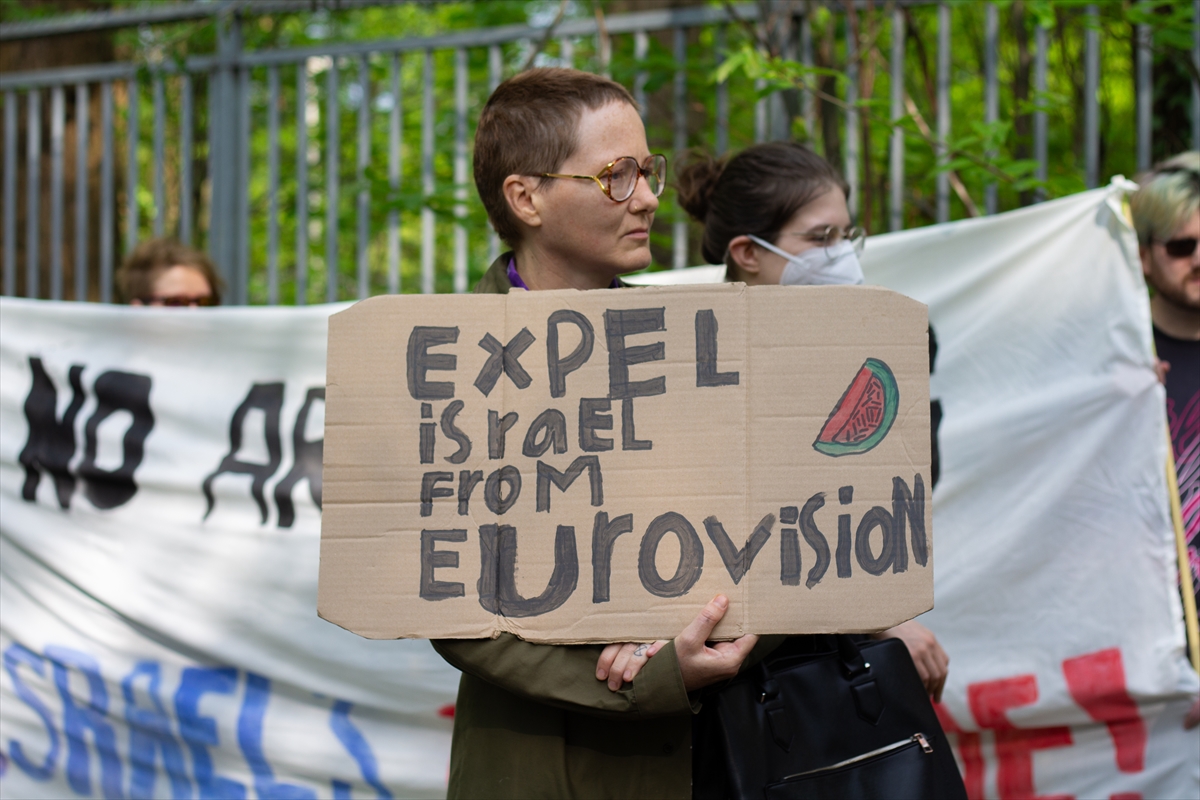 EXPEL
israEL
FROM
EUrovisioN
NO AR
ISRAEL'S